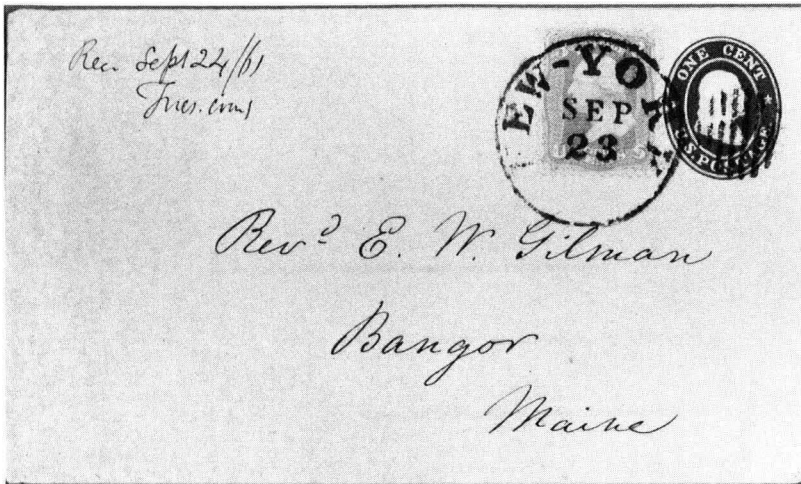 Rec Sept 24/61
Tues. eving
NEW-YORK
SEP
23
ONE CENT
U.S. POSTAGE
Rev.d E. W. Gilman
Bangor
Maine